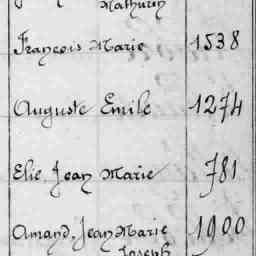 Mathurin
François Marie 1538
Auguste Emile 1274
Elie Jean Marie 781
Amand Jean Marie 1900
Joseph